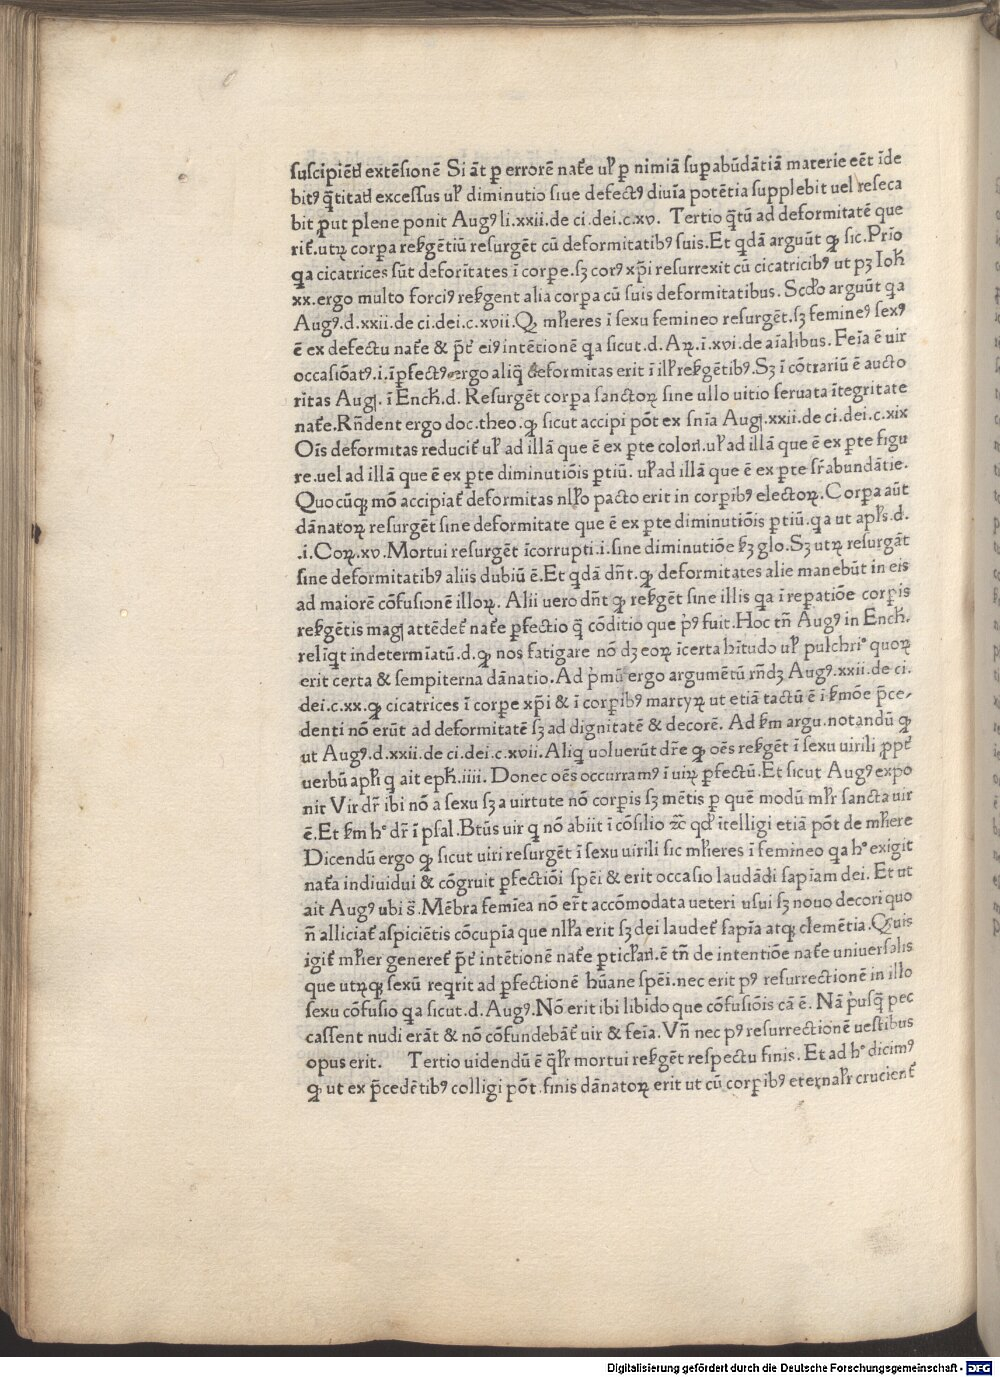 suscipiēt extēsionē Si āt ꝑ errorē nat̄e uꝉ ꝑ nimiā suꝑabūdātiā materie eēt īde
bitꝰ q̄titatꝭ excessus uꝉ diminutio siue defectꝰ diuīa potētia supplebit uel reseca
bit ꝓut plene ponit Augꝰ li.xxii.de ci.dei.c.xv. Tertio q̄tū ad deformitatē que
rit̄.utꝝ corꝑa resꝰgētiū resurgēt cū deformitatibꝰ suis.Et qdā arguūt ꝙ sic.Prīo
qa cicatrices sūt deformitates ī corꝑe.sꝫ corꝰ xp̄i resurrexit cū cicatricibꝰ ut pꝫ Ioħ
xx.ergo multo forciꝰ resꝰgent alia corꝑa cū suis deformitatibus. Scd̄o arguūt qa
Augꝰ.d.xxii.de ci.dei.c.xvii.Ꝙ mꝉieres ī sexu femineo resurgēt.sꝫ femineꝰ sexꝰ
ē ex defectu nat̄e & p̄t̄ eiꝰ intētionē qa sicut.d.Aꝝ.ī.xvi.de aīalibus. Feīa ē uir
occasiōatꝰ.i.īꝑfectꝰ ergo aliq̄ deformitas erit ī ilꝉ resꝰgētibꝰ.Sꝫ ī cōtrariū ē aucto
ritas Augꝭ. ī Encħ.d. Resurgēt corꝑa sanctoꝝ sine ullo uitio seruata ītegritate
nat̄e.Rn̄dent ergo doc.theo.ꝙ sicut accipi pōt ex sn̄ia Augꝭ.xxii.de ci.dei.c.xix
Oīs deformitas reducit̄ uꝉ ad illā que ē ex ꝑte coloris.uꝉ ad illā que ē ex ꝑte figu
re.uel ad illā que ē ex ꝑte diminutiōis ꝑtiū. uꝉ ad illā que ē ex ꝑte sr̄abundātie.
Quocūqꝫ mō accipiat̄ deformitas nlꝉo pacto erit in corꝑibꝰ electoꝝ. Corꝑa aūt
dānatoꝝ resurgēt sine deformitate que ē ex ꝑte diminutiōis ꝑtiū.qa ut apꝉs.d.
.i.Coꝝ.xv.Mortui resurgēt īcorrupti.i.sine diminutiōe sꝫ glo.Sꝫ utꝝ resurgāt
sine deformitatibꝰ aliis dubiū ē.Et qdā dn̄t.ꝙ deformitates alie manebūt in eis
ad maiorē cōfusionē illoꝝ. Alii uero dn̄t ꝙ resꝰgēt sine illis qa ī reꝑatiōe corꝑis
resꝰgētis magꝭ attēdet̄ nat̄e ꝑfectio q̄ cōditio que pꝰ fuit.Hoc tn̄ Augꝰ in Encħ.
reliqt indetermīatū.d.ꝙ nos fatigare nō dꝫ eoꝝ īcerta hītudo uꝉ pulchriº quoꝝ
erit certa & sempiterna dānatio.Ad pͥmū ergo argumētū rn̄dꝫ Augꝰ.xxii.de ci.
dei.c.xx.ꝙ cicatrices ī corꝑe xp̄i & ī corꝑibꝰ martyꝝ ut etiā tactū ē ī sꝰmōe p̄ce-
denti nō erūt ad deformitatē sꝫ ad dignitatē & decorē. Ad sꝰm argu.notandū ꝙ
ut Augꝰ.d.xxii.de ci.dei.c.xvii.Aliq uoluerūt dr̄e ꝙ oēs resꝰgēt ī sexu uirili ꝓpt̄
uerbū apꝉi q ait epħ.iiii. Donec oēs occurramꝰ ī uiꝝ ꝑfectū.Et sicut Augꝰ expo
nit Vir dr̄ ibi nō a sexu sꝫ a uirtute nō corꝑis sꝫ mētis ꝑ quē modū mꝉr sancta uir
ē.Et sꝰm hº dr̄ ī psal.Btūs uir q nō abiit ī cōsilio ⁊c̄ qd̄ ītelligi etiā pōt de mꝉiere
Dicendū ergo ꝙ sicut uiri resurgēt ī sexu uirili sic mꝉieres ī femineo qa hº exigit
nat̄a indiuidui & cōgruit ꝑfectiōi spēi & erit occasio laudādi sapīam dei. Et ut
ait Augꝰ ubi s̄. Mēbra femīea nō er̄t accōmodata ueteri usui sꝫ nouo decori quo
n̄ alliciat̄ aspiciētis cōcupīa que nlꝉa erit sꝫ dei laudet̄ sapīa atqꝫ clemētia.Quis
igit̄ mꝉier generet̄ p̄t̄ intētionē nat̄e ꝑticꝉaris.ē tn̄ de intentiōe nat̄e uniuersalis
que utrūqꝫ sexū reqrit ad ꝑfectionē hūane spēi.nec erit pꝰ resurrectionē in illo
sexu cōfusio qa sicut.d.Augꝰ.Nō erit ibi libido que cōfusiōis cā ē. Nā pͥusq̄ pec
cassent nudi erāt & nō cōfundebāt̄ uir & feīa. Vn̄ nec pꝰ resurrectionē uestibus
opus erit. Tertio uidendū ē q̄lꝉr mortui resꝰgēt respectu finis. Et ad hº dicimꝰ
ꝙ ut ex p̄cedētibꝰ colligi pōt.finis dānatoꝝ erit ut cū corꝑibꝰ eternalꝉr crucient̄
Digitalisierung gefördert durch die Deutsche Forschungsgemeinschaft - DFG